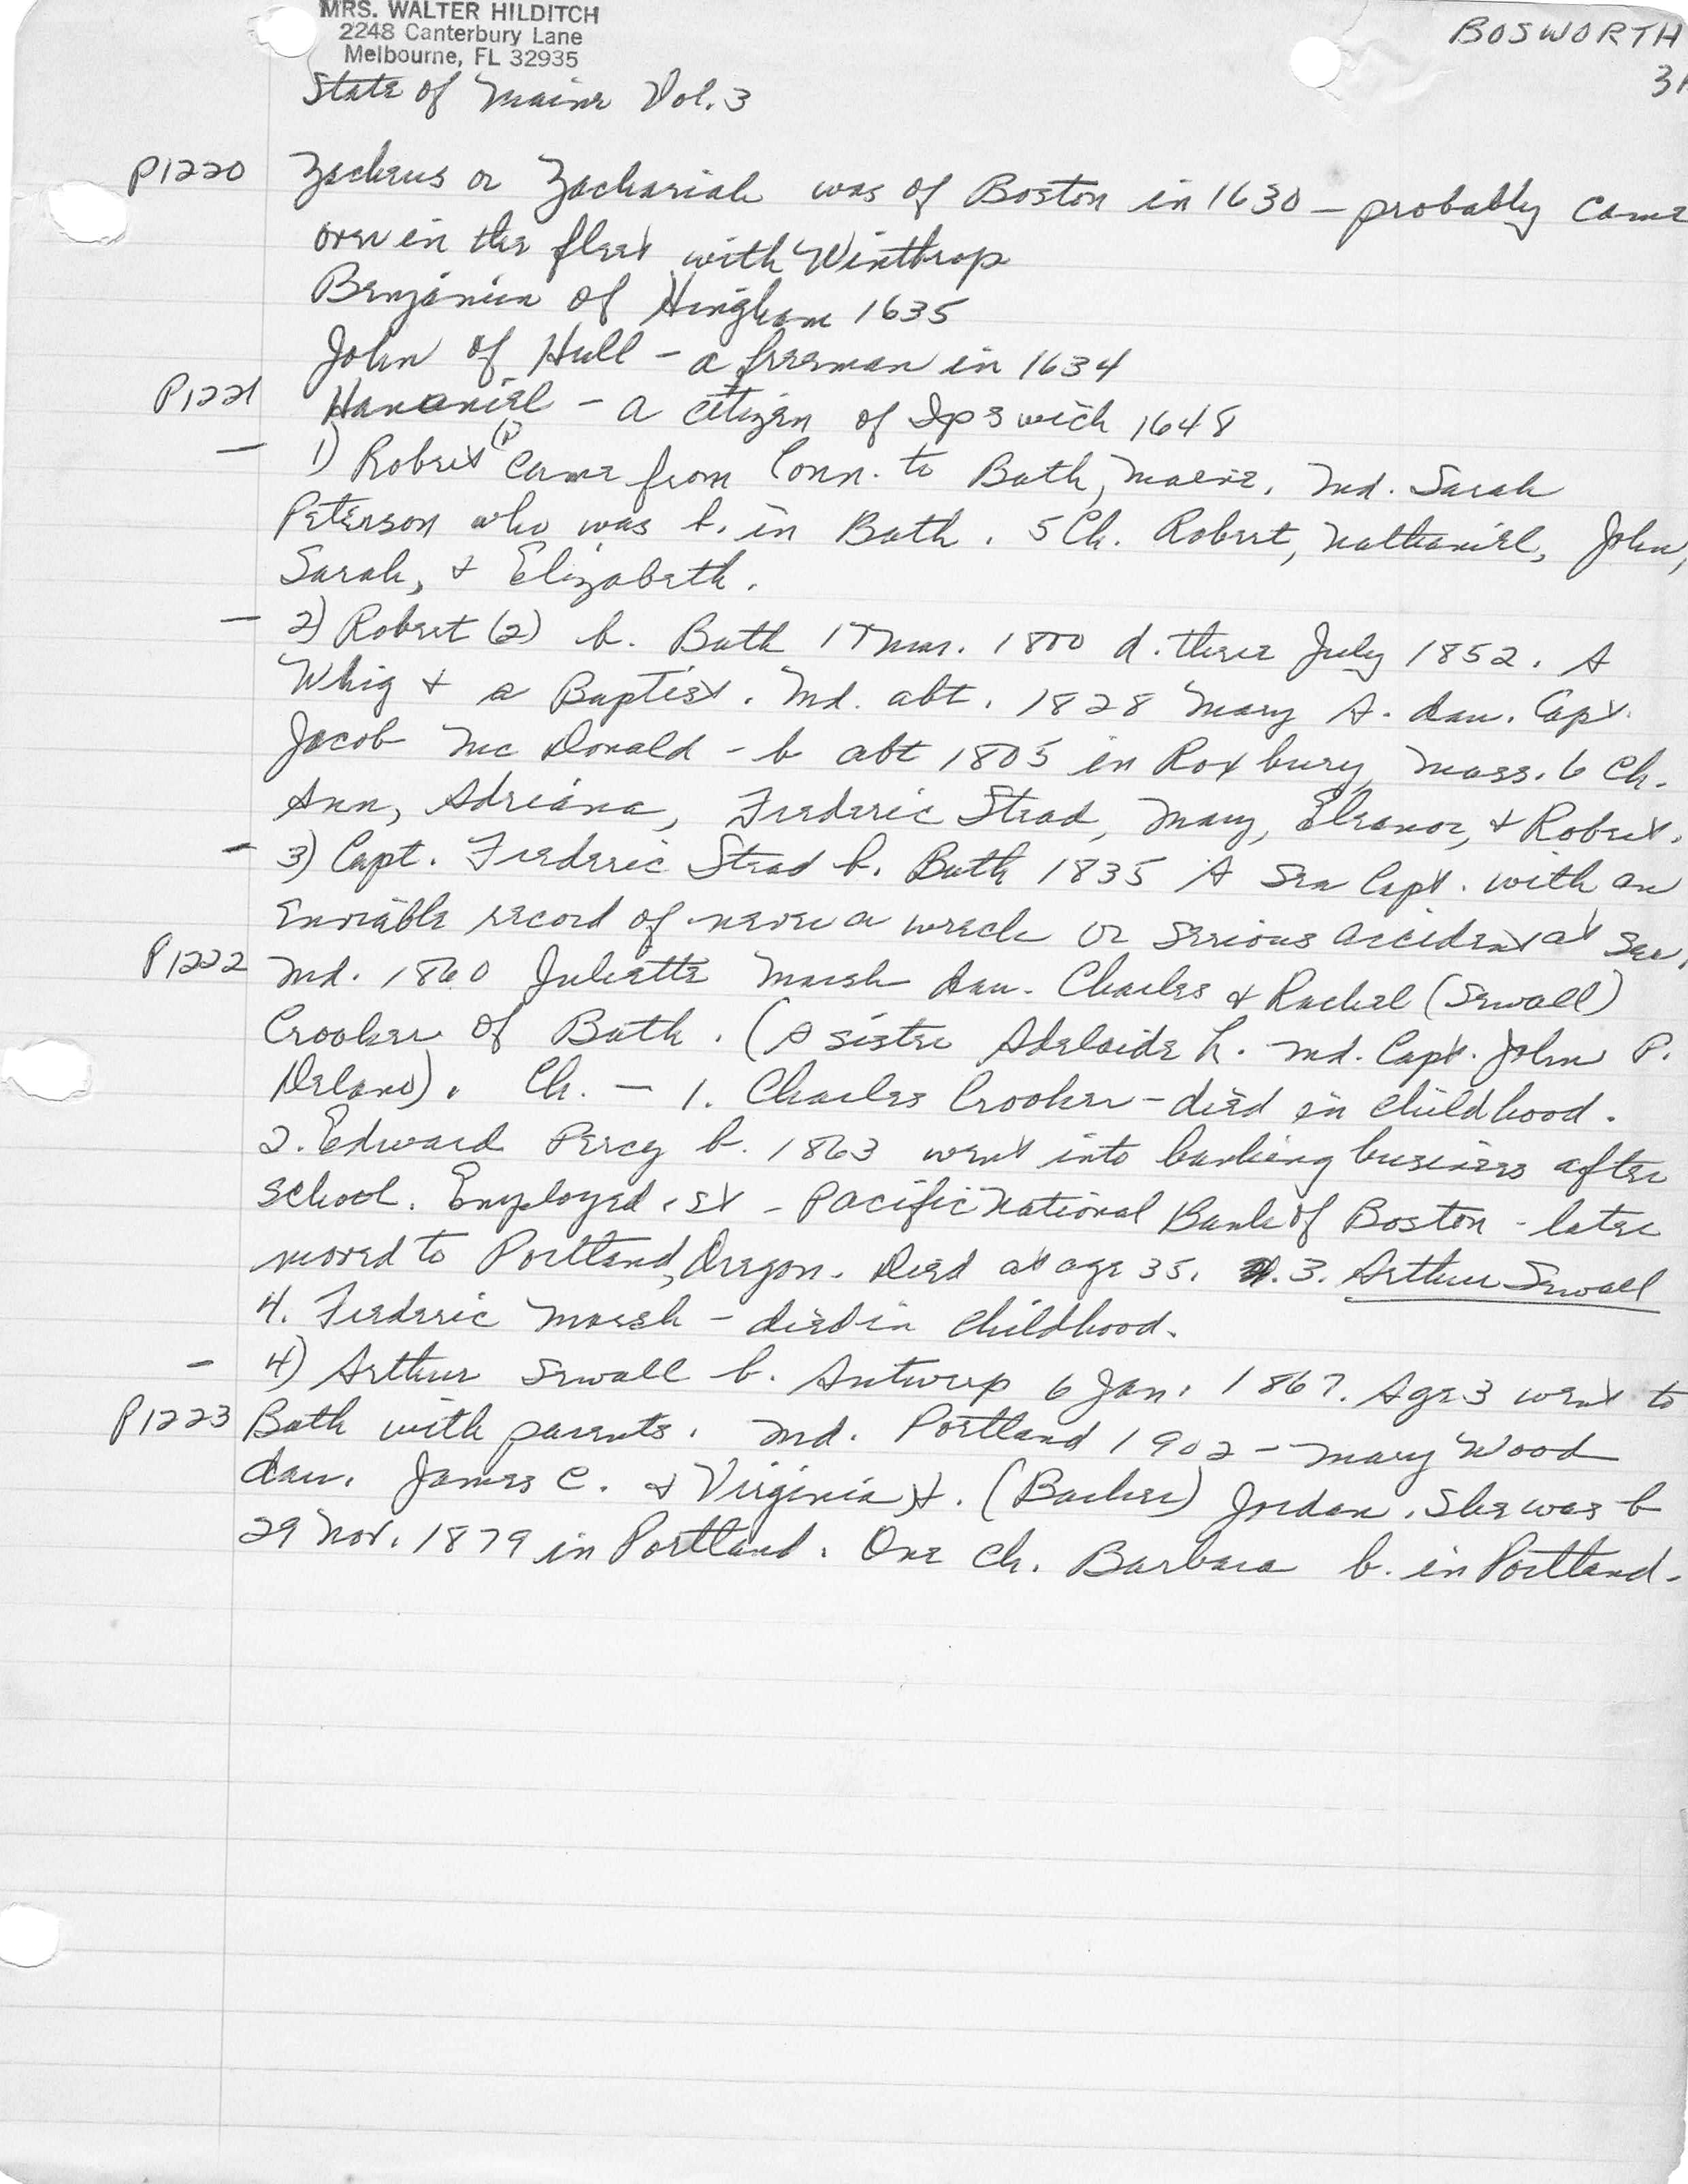 MRS. WALTER HILDITCH
2248 Canterbury Lane
Melbourne, FL 32935
BOSWORTH
State of Maine Vol. 3
P1220 Zacheus or Zachariah was of Boston in 1630 – probably came
over in the fleet with Winthrop
Benjamin of Hingham 1635
John of Hull – a freeman in 1634
P1221 Hananiel – a citizen of Ipswich 1648
– 1) Robert (1) came from Conn. to Bath, Maine. Md. Sarah
Peterson who was b. in Bath. 5 Ch. Robert, Nathaniel, John,
Sarah, & Elizabeth.
– 2) Robert (2) b. Bath 17 Mar. 1800 d. there July 1852. A
Whig & a Baptist. Md. abt. 1828 Mary A. dau. Capt.
Jacob McDonald – b abt 1805 in Roxbury, Mass. 6 Ch.
Ann, Adriana, Frederic Stead, Mary, Eleanor, & Robert.
– 3) Capt. Frederic Stead b. Bath 1835 A Sea Capt. with an
enviable record of never a wreck or serious accident at sea.
P1222 Md. 1860 Juliette Marsh dau. Charles & Rachel (Sewall)
Crooker of Bath. (A sister Adelaide L. md. Capt. John P.
Delano). Ch. – 1. Charles Crooker – died in childhood.
2. Edward Percy b. 1863 went into banking business after
school. Employed 1st – Pacific National Bank of Boston – later
moved to Portland, Oregon. Died at age 35. 3. Arthur Sewall
4. Frederic Marsh – died in childhood.
– 4) Arthur Sewall b. Antwerp 6 Jan. 1867. Age 3 went to
P1223 Bath with parents. Md. Portland 1902 – Mary Wood
dau. James C. & Virginia (Barker) Jordan. She was b
29 Nov. 1879 in Portland. One ch. Barbara b. in Portland.